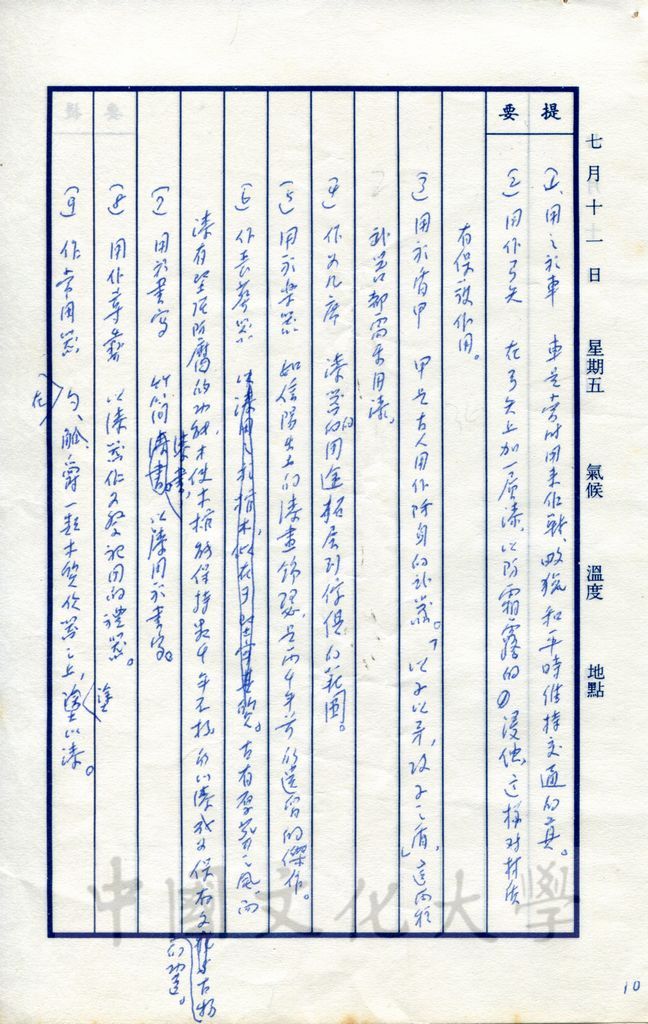 七月十一日 星期五 氣候 溫度 地點
提要
(1)、用之於車 車是當時用來作戰、畋獵和平時維持交通的工具。
(2) 用作弓矢 在弓矢上加一層漆,以防霜露的浸蝕,這樣對材質
有保護作用。
(3) 用於盾甲 甲是古人用作防身的武器。「以子之矛,攻子之盾,」這兩種
武器都需要用漆。
(4) 作為几席 漆學的用途拓展到傢俱的範圍。
(5) 用於樂器 如信陽出土的漆畫錦瑟,是兩千年前的遺留的傑作。
(6) 作喪葬器 古有厚葬之風,而
漆有堅固防腐的功能,使木棺能保持幾千年不朽,所以漆成了保存文物
的功臣。
(7) 用於書寫 竹簡漆書,以漆用於書寫。
(8) 用作尊彝 以漆器作為祭祀用的禮器。
(9) 作常用器 在勺、觚、爵一類木質飲器之上,塗以漆。
10
中國文化大學